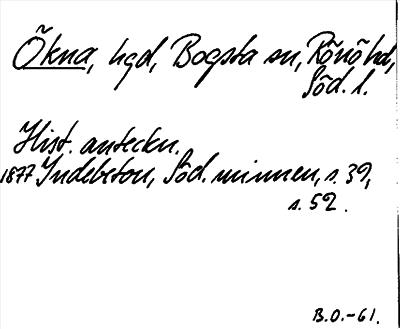 Ökna, hgd, Bogsta sn, Rönö hd,
Söd. l.
Hist. anteckn.
1877 Indebetou, Söd. minnen, s. 39,
s. 52.
B.O.-61.